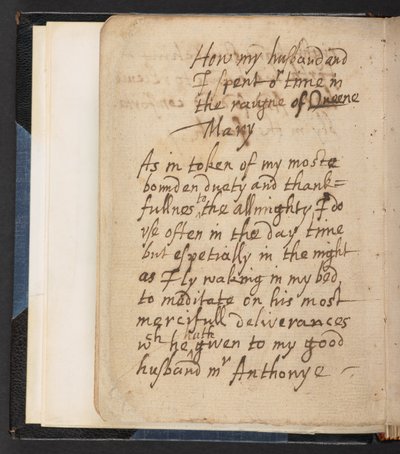 How my husband and
I spent oʳ time in
the raygne of Queene
Mary
As in token of my moste
bownden duety and thank=
fullnes to the allmighty I do
vse often in the day time
but espetially in the night
as I ly waking in my bed
to meditate on his most
mercifull deliverances
wᶜʰ he hath given to my good
husband mʳ Anthonye